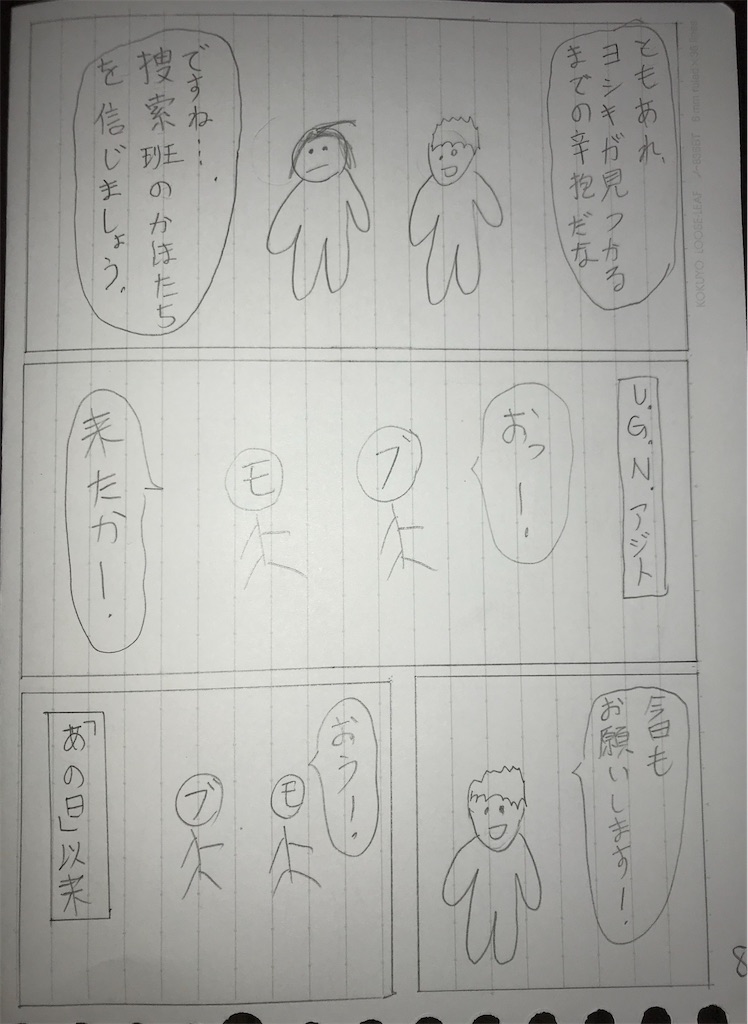 ともあれ、
ヨシキが見つかる
までの辛抱だな
ですね…。
捜索班のかほたち
を信じましょう。
U.G.N.アジト
おっー!
ブ
モ
来たかー!
今日も
お願いします!
おうー!
モ
ブ
「あの日」以来
8
KOKUYO LOOSE-LEAF